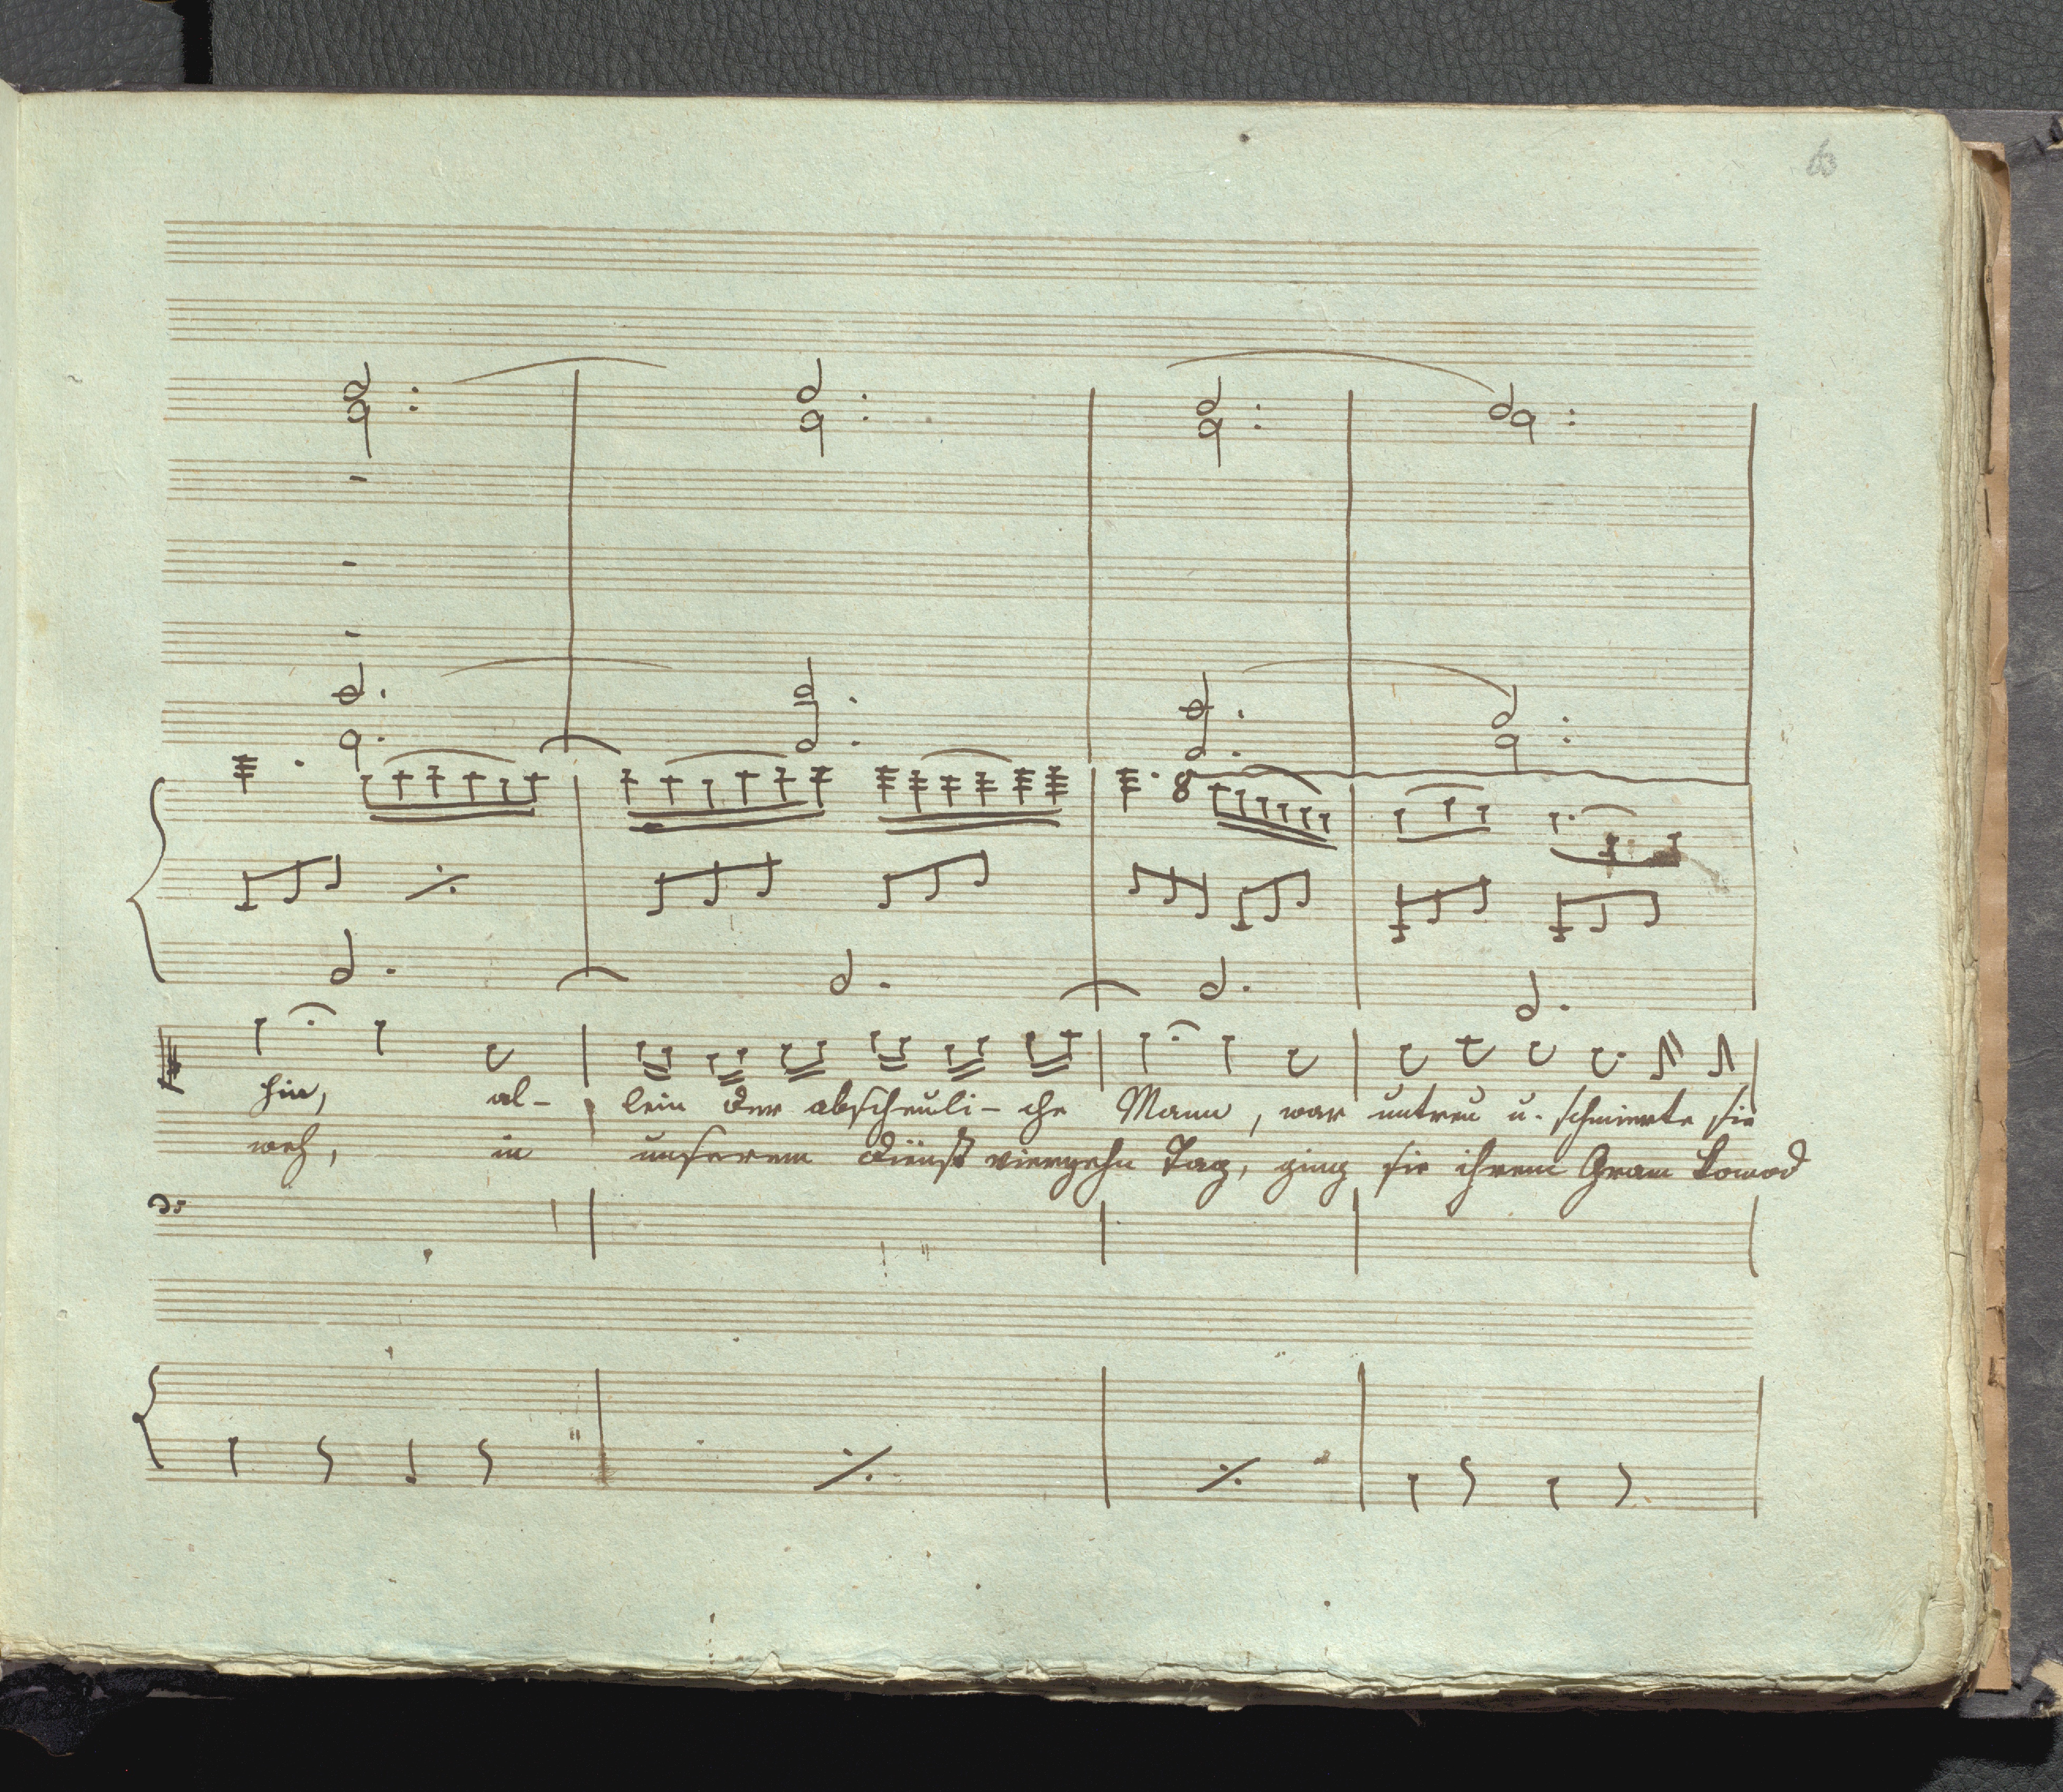 63
8
hin, al- lein der abscheuli- che Mann, war untreu u. schmierte sie
weh, in unserem Dienst vierzehn Tag, ging sie ihrem Gram